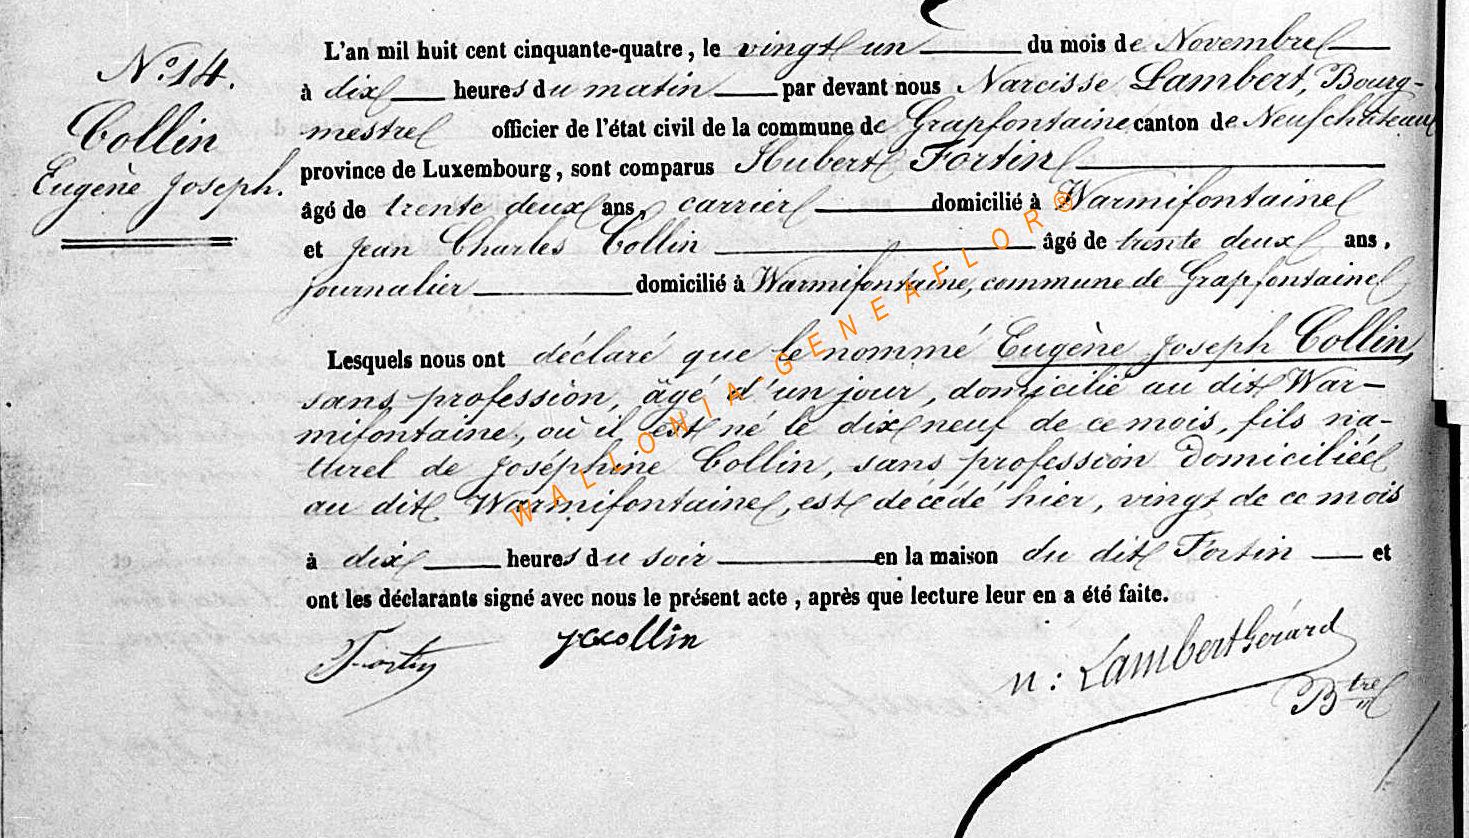 N.º 14.
Collin
Eugène Joseph.
L'an mil huit cent cinquante-quatre, le vingt un du mois de Novembre
à dix heures du matin par devant nous Narcisse Lambert, Bourg-
mestre officier de l'état civil de la commune de Grapfontaine canton de Neufchâteau
province de Luxembourg, sont comparus Hubert Fortin
âgé de trente deux ans, carrier domicilié à Warmifontaine
et Jean Charles Collin âgé de trente deux ans,
journalier domicilié à Warmifontaine, commune de Grapfontaine
Lesquels nous ont déclaré que le nommé Eugène Joseph Collin,
sans profession, âgé d'un jour, domicilié au dit War-
mifontaine, où il est né le dix neuf de ce mois, fils na-
turel de Joséphine Collin, sans profession domiciliée
au dit Warmifontaine, est décédé hier, vingt de ce mois
à dix heures du soir en la maison du dit Fortin et
ont les déclarants signé avec nous le présent acte, après que lecture leur en a été faite.
Fortin JCcollin n: Lambert Gérard
Btre
WALLONIA-GENEAFLOR®